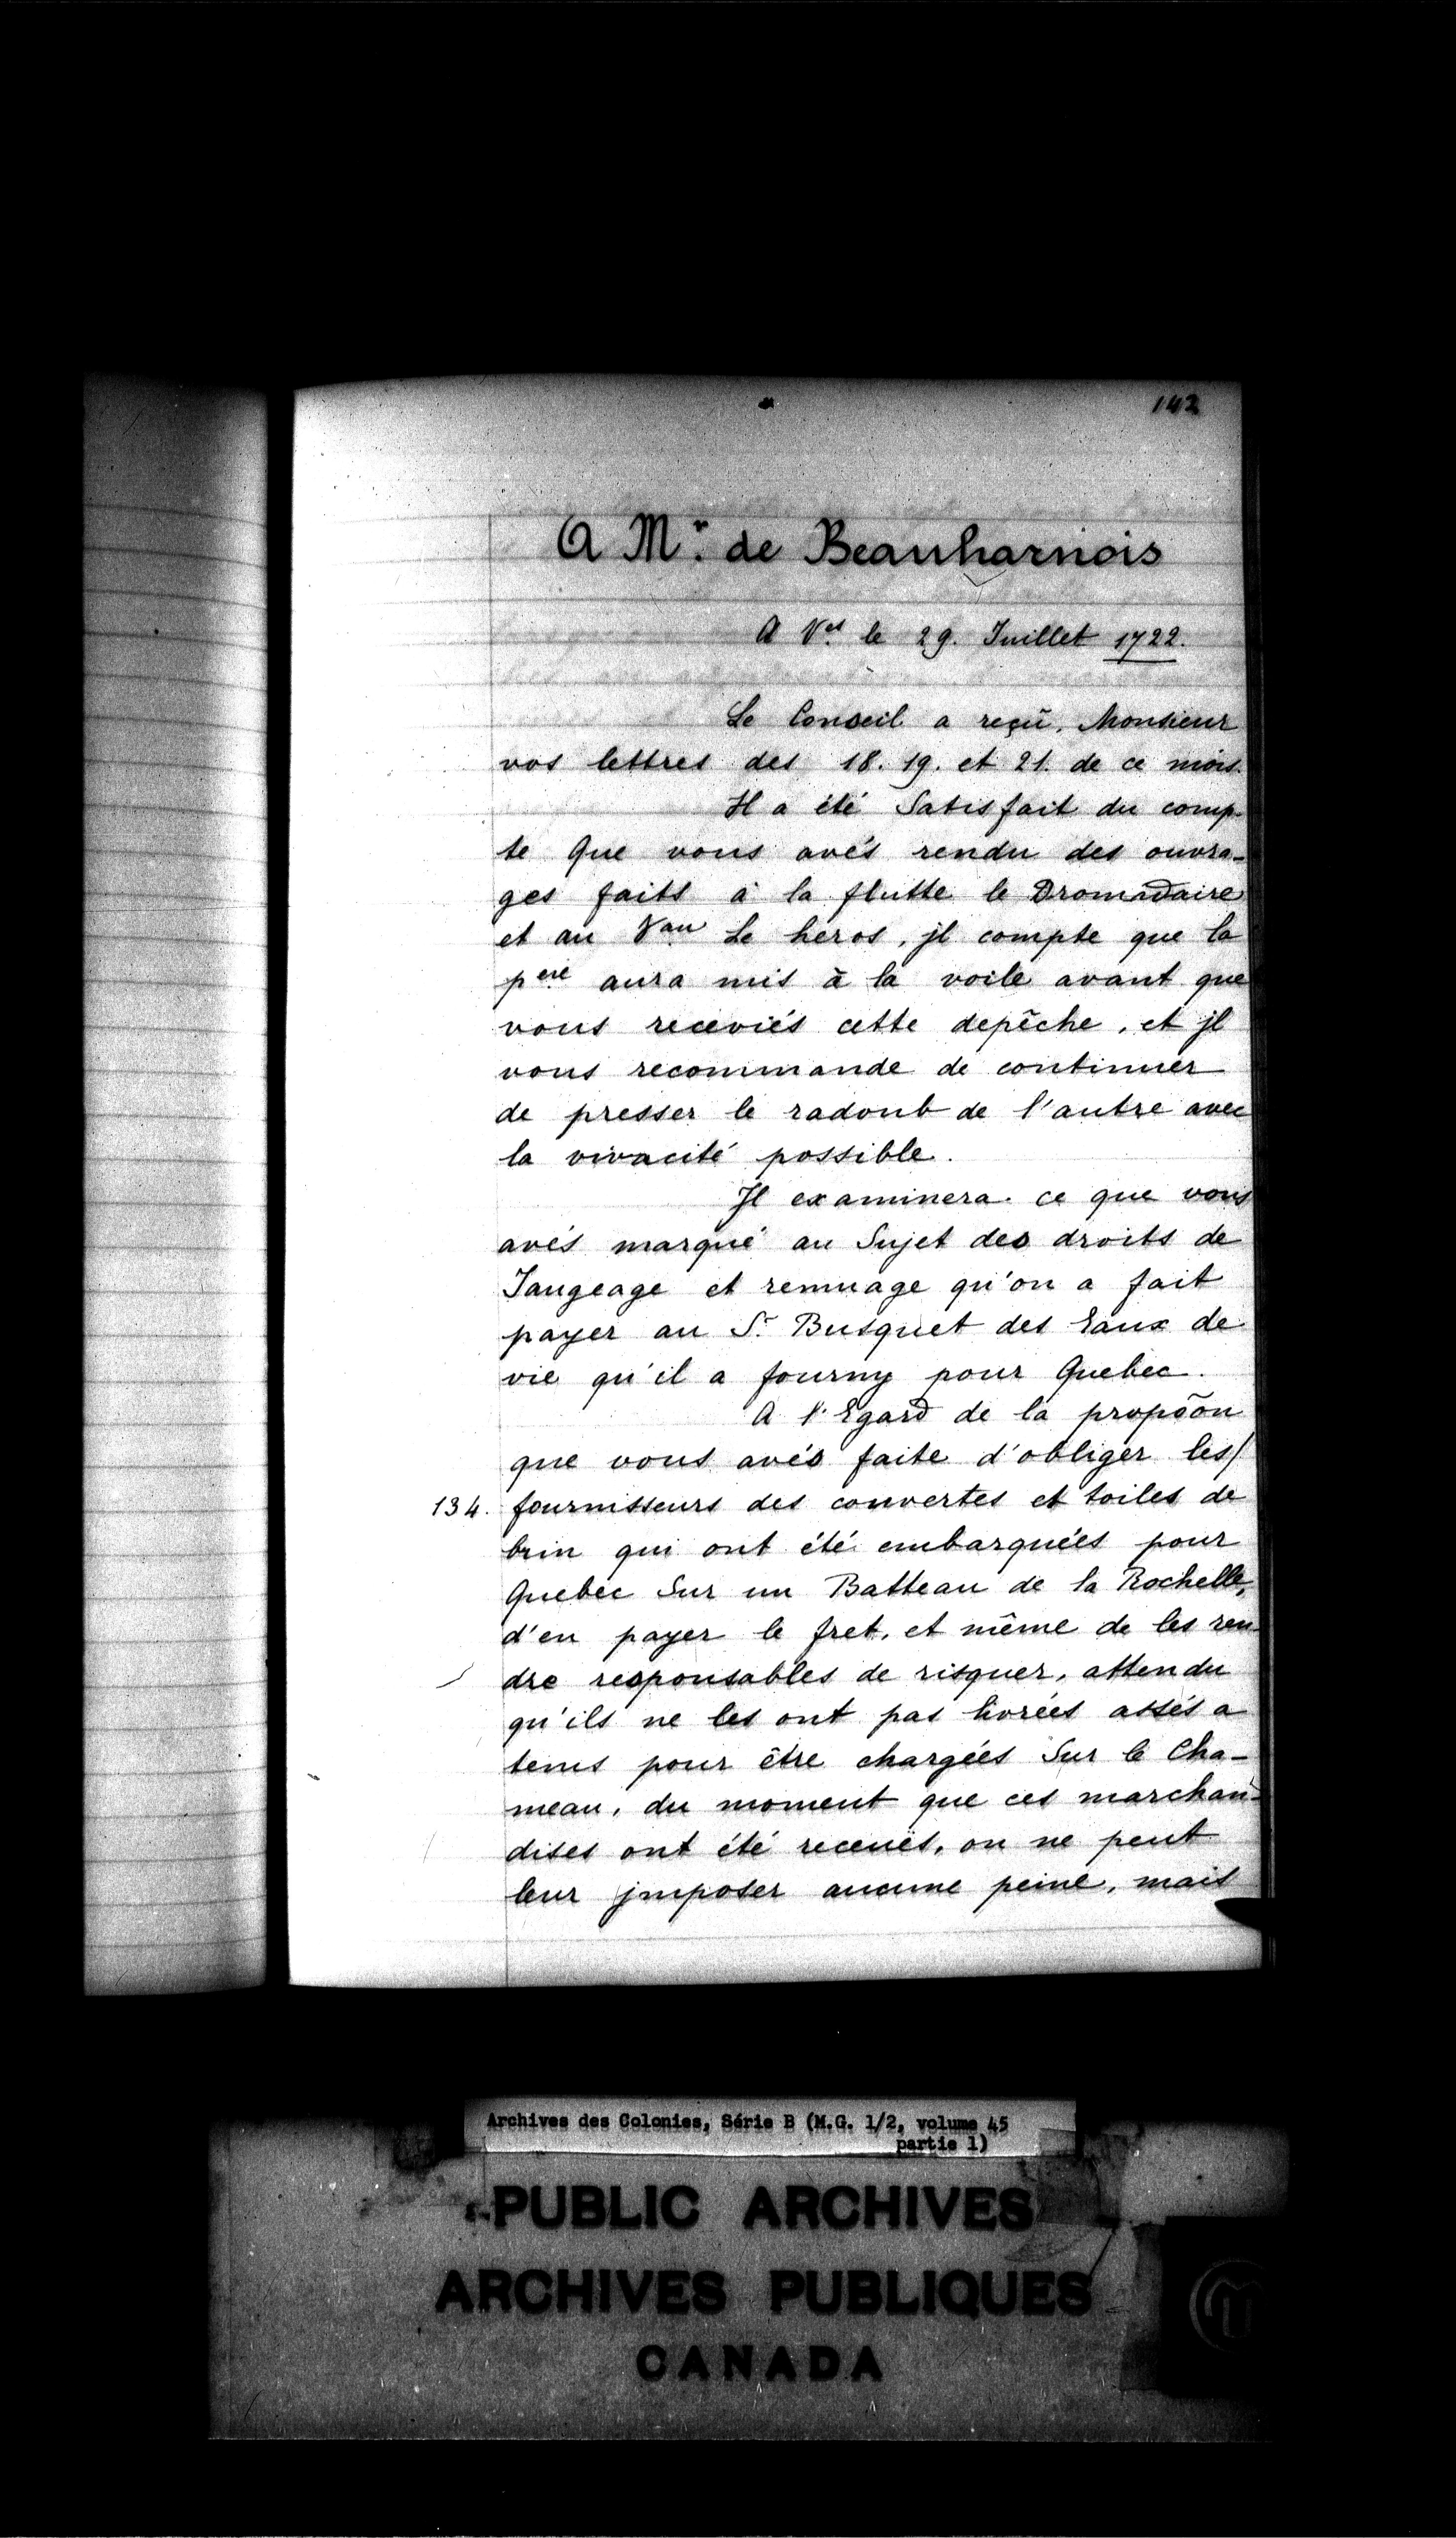 142
A Mr. de Beauharnois
A Vel le 29. Juillet 1722.
Le Conseil a reçû, Monsieur
vos lettres des 18. 19. et 21. de ce mois.
Il a été Satisfait du comp-
te que vous avés rendu des ouvra-
ges faits à la flutte le Dromadaire
et au Vau Le heros, jl compte que la
pere aura mis à la voile avant que
vous receviés cette depêche, et jl
vous recommande de continuer
de presser le radoub de l'autre avec
la vivacité possible.
Il examinera ce que vous
avés marqué au Sujet des droits de
Jaugeage et remuage qu'on a fait
payer au Sr. Busquet des Eaux de
vie qu'il a fourny pour Quebec.
A l'Egard de la propõon
que vous avés faite d'obliger les/
134. fournisseurs des couvertes et toiles de
brin qui ont été embarquées pour
Quebec Sur un Batteau de la Rochelle,
d'en payer le fret, et même de les ren-
dre responsables de risquer, attendu
qu'ils ne les ont pas livrées assés a
tems pour être chargées Sur le Cha-
meau, du moment que ces marchan-
dises ont été receuës, on ne peut
leur jmposer aucune peine, mais
Archives des Colonies, Série B (M.G. 1/2, volume 45
partie 1)
PUBLIC ARCHIVES
ARCHIVES PUBLIQUES
CANADA